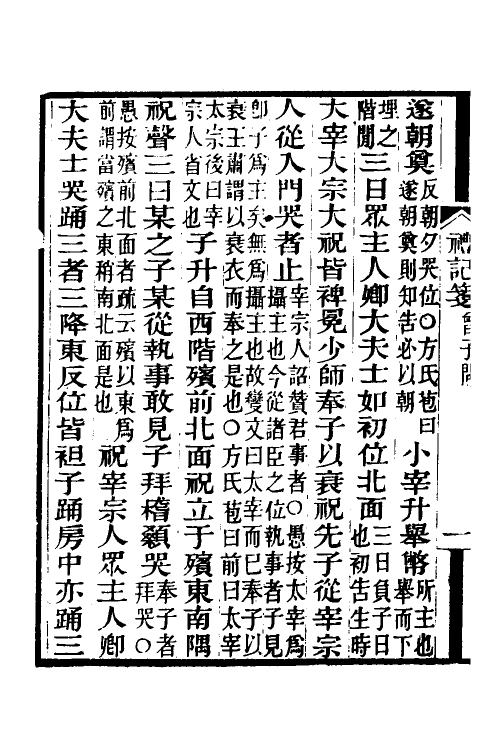 遂朝奠反朝夕哭位〇方氏苞曰遂朝奠則知告必以朝小宰升舉幣所主也舉而下
埋之階閒三日眾主人卿大夫士如初位北面三日負子日也初告生時
大宰大宗大祝皆裨冕少師奉子以衰祝先子從宰宗
人從入門哭者止宰宗人詔贊君事者〇愚按太宰爲攝主也今從諸臣之位執事者子見
卽子爲主矣無爲攝主也故變文曰太宰而已奉子以衰王肅謂以衰衣而奉之是也〇方氏苞曰前曰太宰
太宗後曰宰宗人省文也子升自西階殯前北面祝立于殯東南隅
祝聲三曰某之子某從執事敢見子拜稽顙哭奉子者拜哭〇
愚按殯前北面者疏云殯以東爲前謂當殯之東稍南北面是也祝宰宗人眾主人卿
大夫士哭踊三者三降東反位皆袒子踊房中亦踊三
禮記箋 曾子問
一